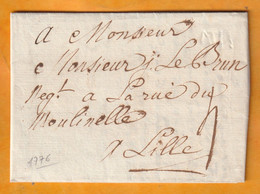 A Monsieur
Monsieur J: Le Brun
Negt a La rue du
Moulinelle
a Lille
1776